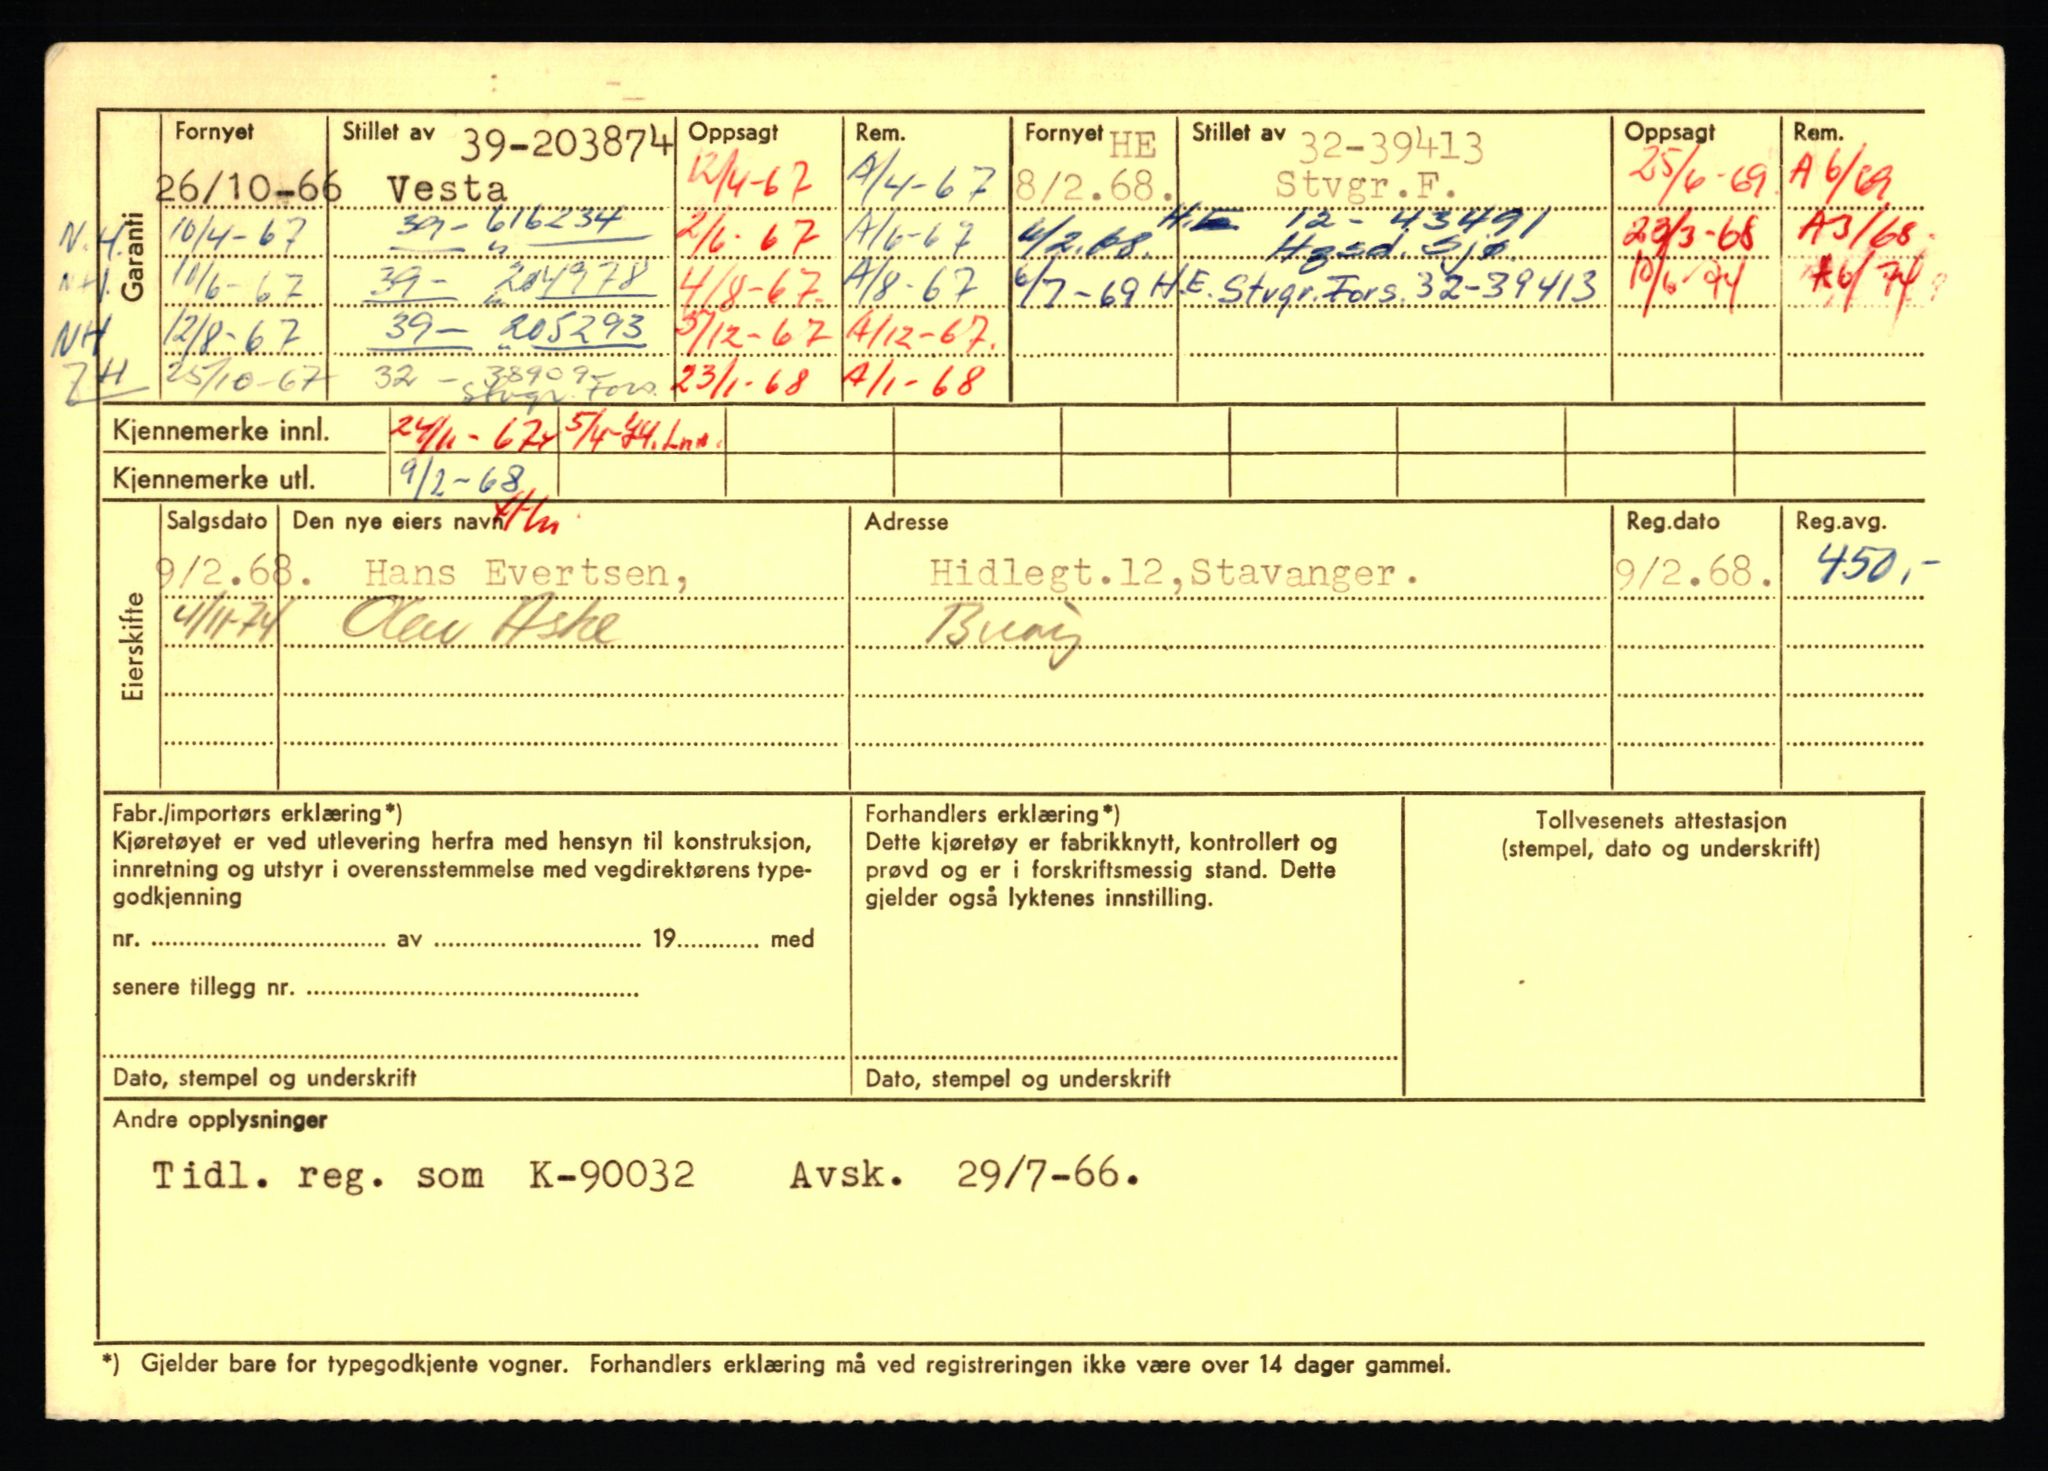 Garanti
Fornyet Stillet av 39-203874 Oppsagt Rem. Fornyet HE Stillet av 32-39413 Oppsagt Rem.
26/10-66 Vesta 12/4-67 A/4-67 8/2.68. Stvgr.F. 25/6-69 A 6/69
N.H. 10/4-67 39-616234 2/6-67 A/6-67 6/2.68. H.E 12-43491 Hgsd. Sjø. 23/3-68 A3/68.
NH. 10/6-67 39-204978 4/8-67. A/8-67 6/7-69 H.E. Stvgr.Fors. 32-39413 10/6-74 A6/74
NH 12/8-67 39-205293 5/12-67 A/12-67.
25/10-67 32-38909- Stvgr. Fors. 23/1-68 A/1-68
Kjennemerke innl. 24/11-67 5/4-74.
Kjennemerke utl. 9/2-68
Eierskifte
Salgsdato Den nye eiers navn Adresse Reg.dato Reg.avg.
9/2.68. Hans Evertsen, Hidlegt.12,Stavanger. 9/2.68. 450,-
4/11-74 Olav Aske
Fabr./importørs erklæring*)
Kjøretøyet er ved utlevering herfra med hensyn til konstruksjon,
innretning og utstyr i overensstemmelse med vegdirektørens type-
godkjenning
nr. ........ av ........ 19........ med
senere tillegg nr. ........
Dato, stempel og underskrift
Forhandlers erklæring*)
Dette kjøretøy er fabrikknytt, kontrollert og
prøvd og er i forskriftsmessig stand. Dette
gjelder også lyktenes innstilling.
Dato, stempel og underskrift
Tollvesenets attestasjon
(stempel, dato og underskrift)
Andre opplysninger
Tidl. reg. som K-90032 Avsk. 29/7-66.
*) Gjelder bare for typegodkjente vogner. Forhandlers erklæring må ved registreringen ikke være over 14 dager gammel.